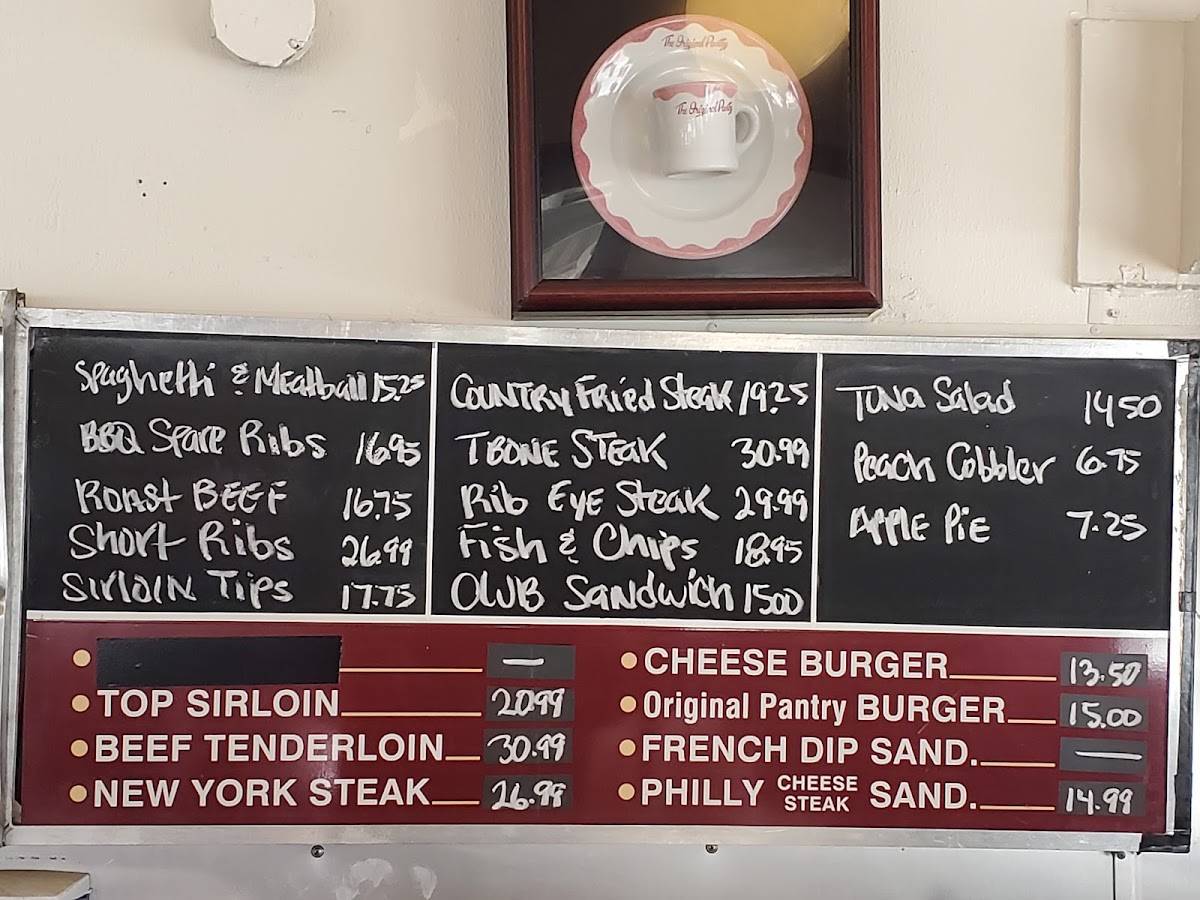 The Original Pantry
The Original Pantry
Spaghetti & Meatball 15.25
BBQ Spare Ribs 16.95
ROAST BEEF 16.75
Short Ribs 26.99
SIRLOIN TIPS 17.75
COUNTRY FRIED Steak 19.25
TBONE STEAK 30.99
Rib Eye Steak 29.99
Fish & Chips 18.95
OWB Sandwich 1500
TUNA Salad 1450
Peach Cobbler 6.75
APPLE PIE 7.25
—
TOP SIRLOIN 2099
BEEF TENDERLOIN 30.99
NEW YORK STEAK 26.99
CHEESE BURGER 13.50
Original Pantry BURGER 15.00
FRENCH DIP SAND. —
PHILLY CHEESE STEAK SAND. 14.99